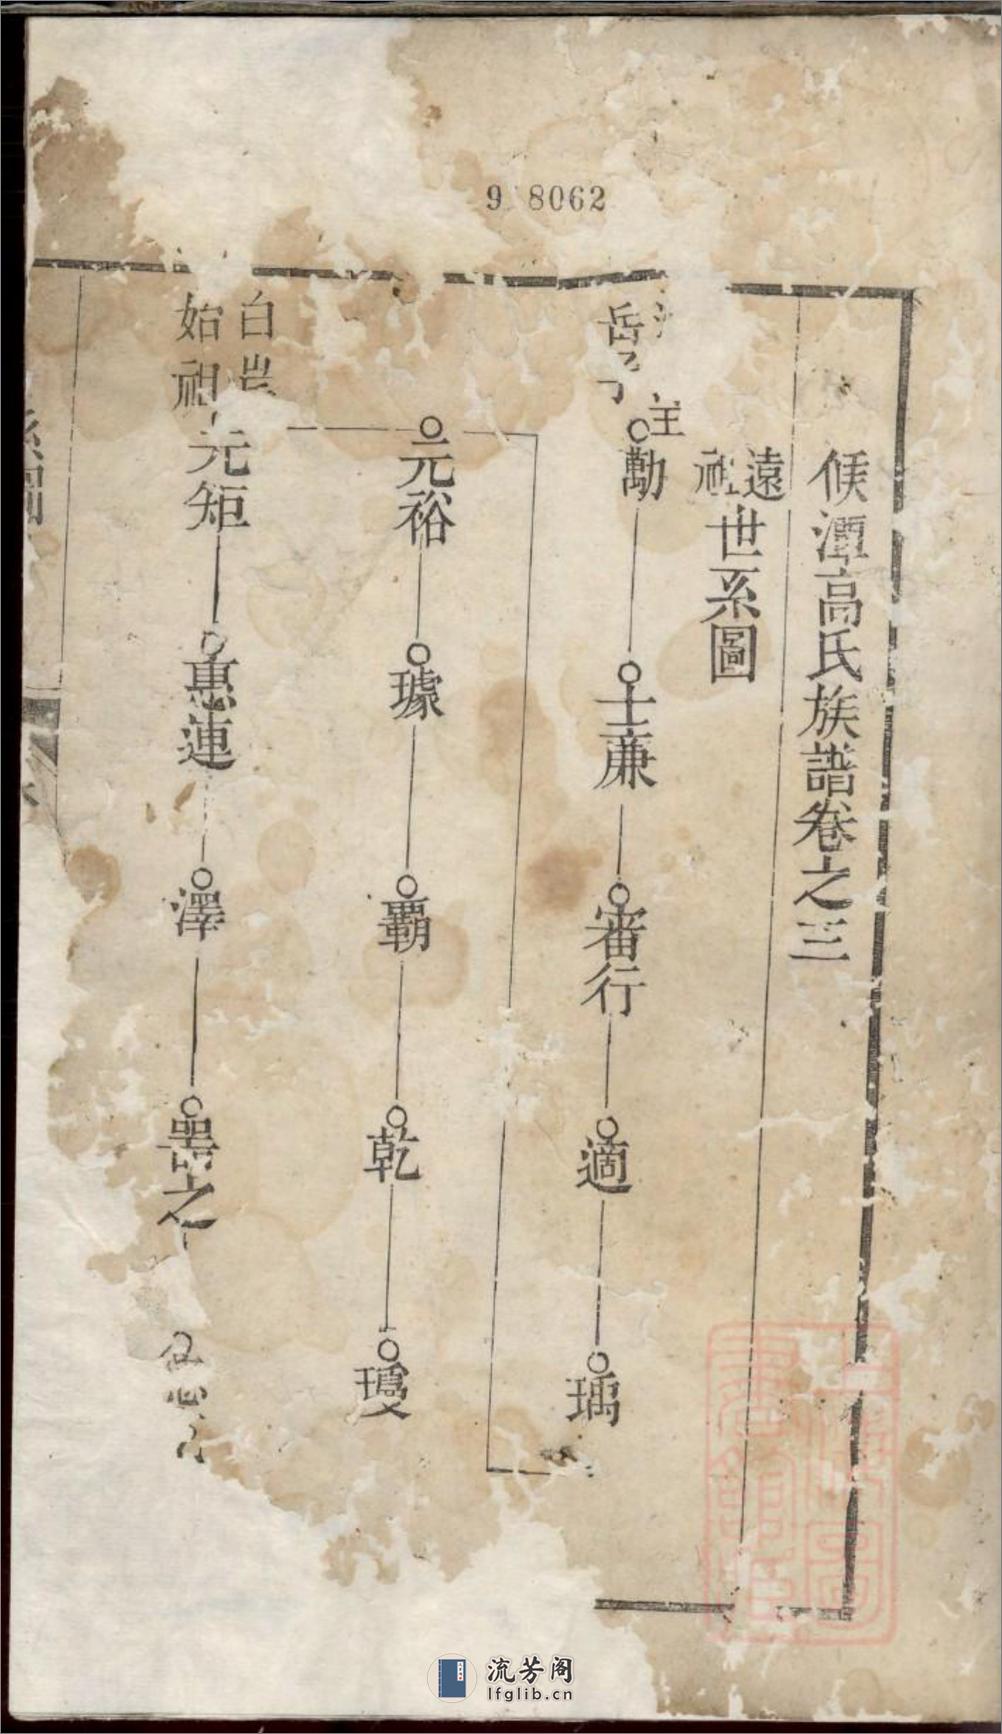 9 8062
候潭高氏族譜卷之三
遠祖世系圖
岳
王
勱
士廉
審行
適
瑀
元裕
璩
覇
乾
瓊
白
始祖
元矩
惠連
澤
器之
流芳阁
lfglib.cn